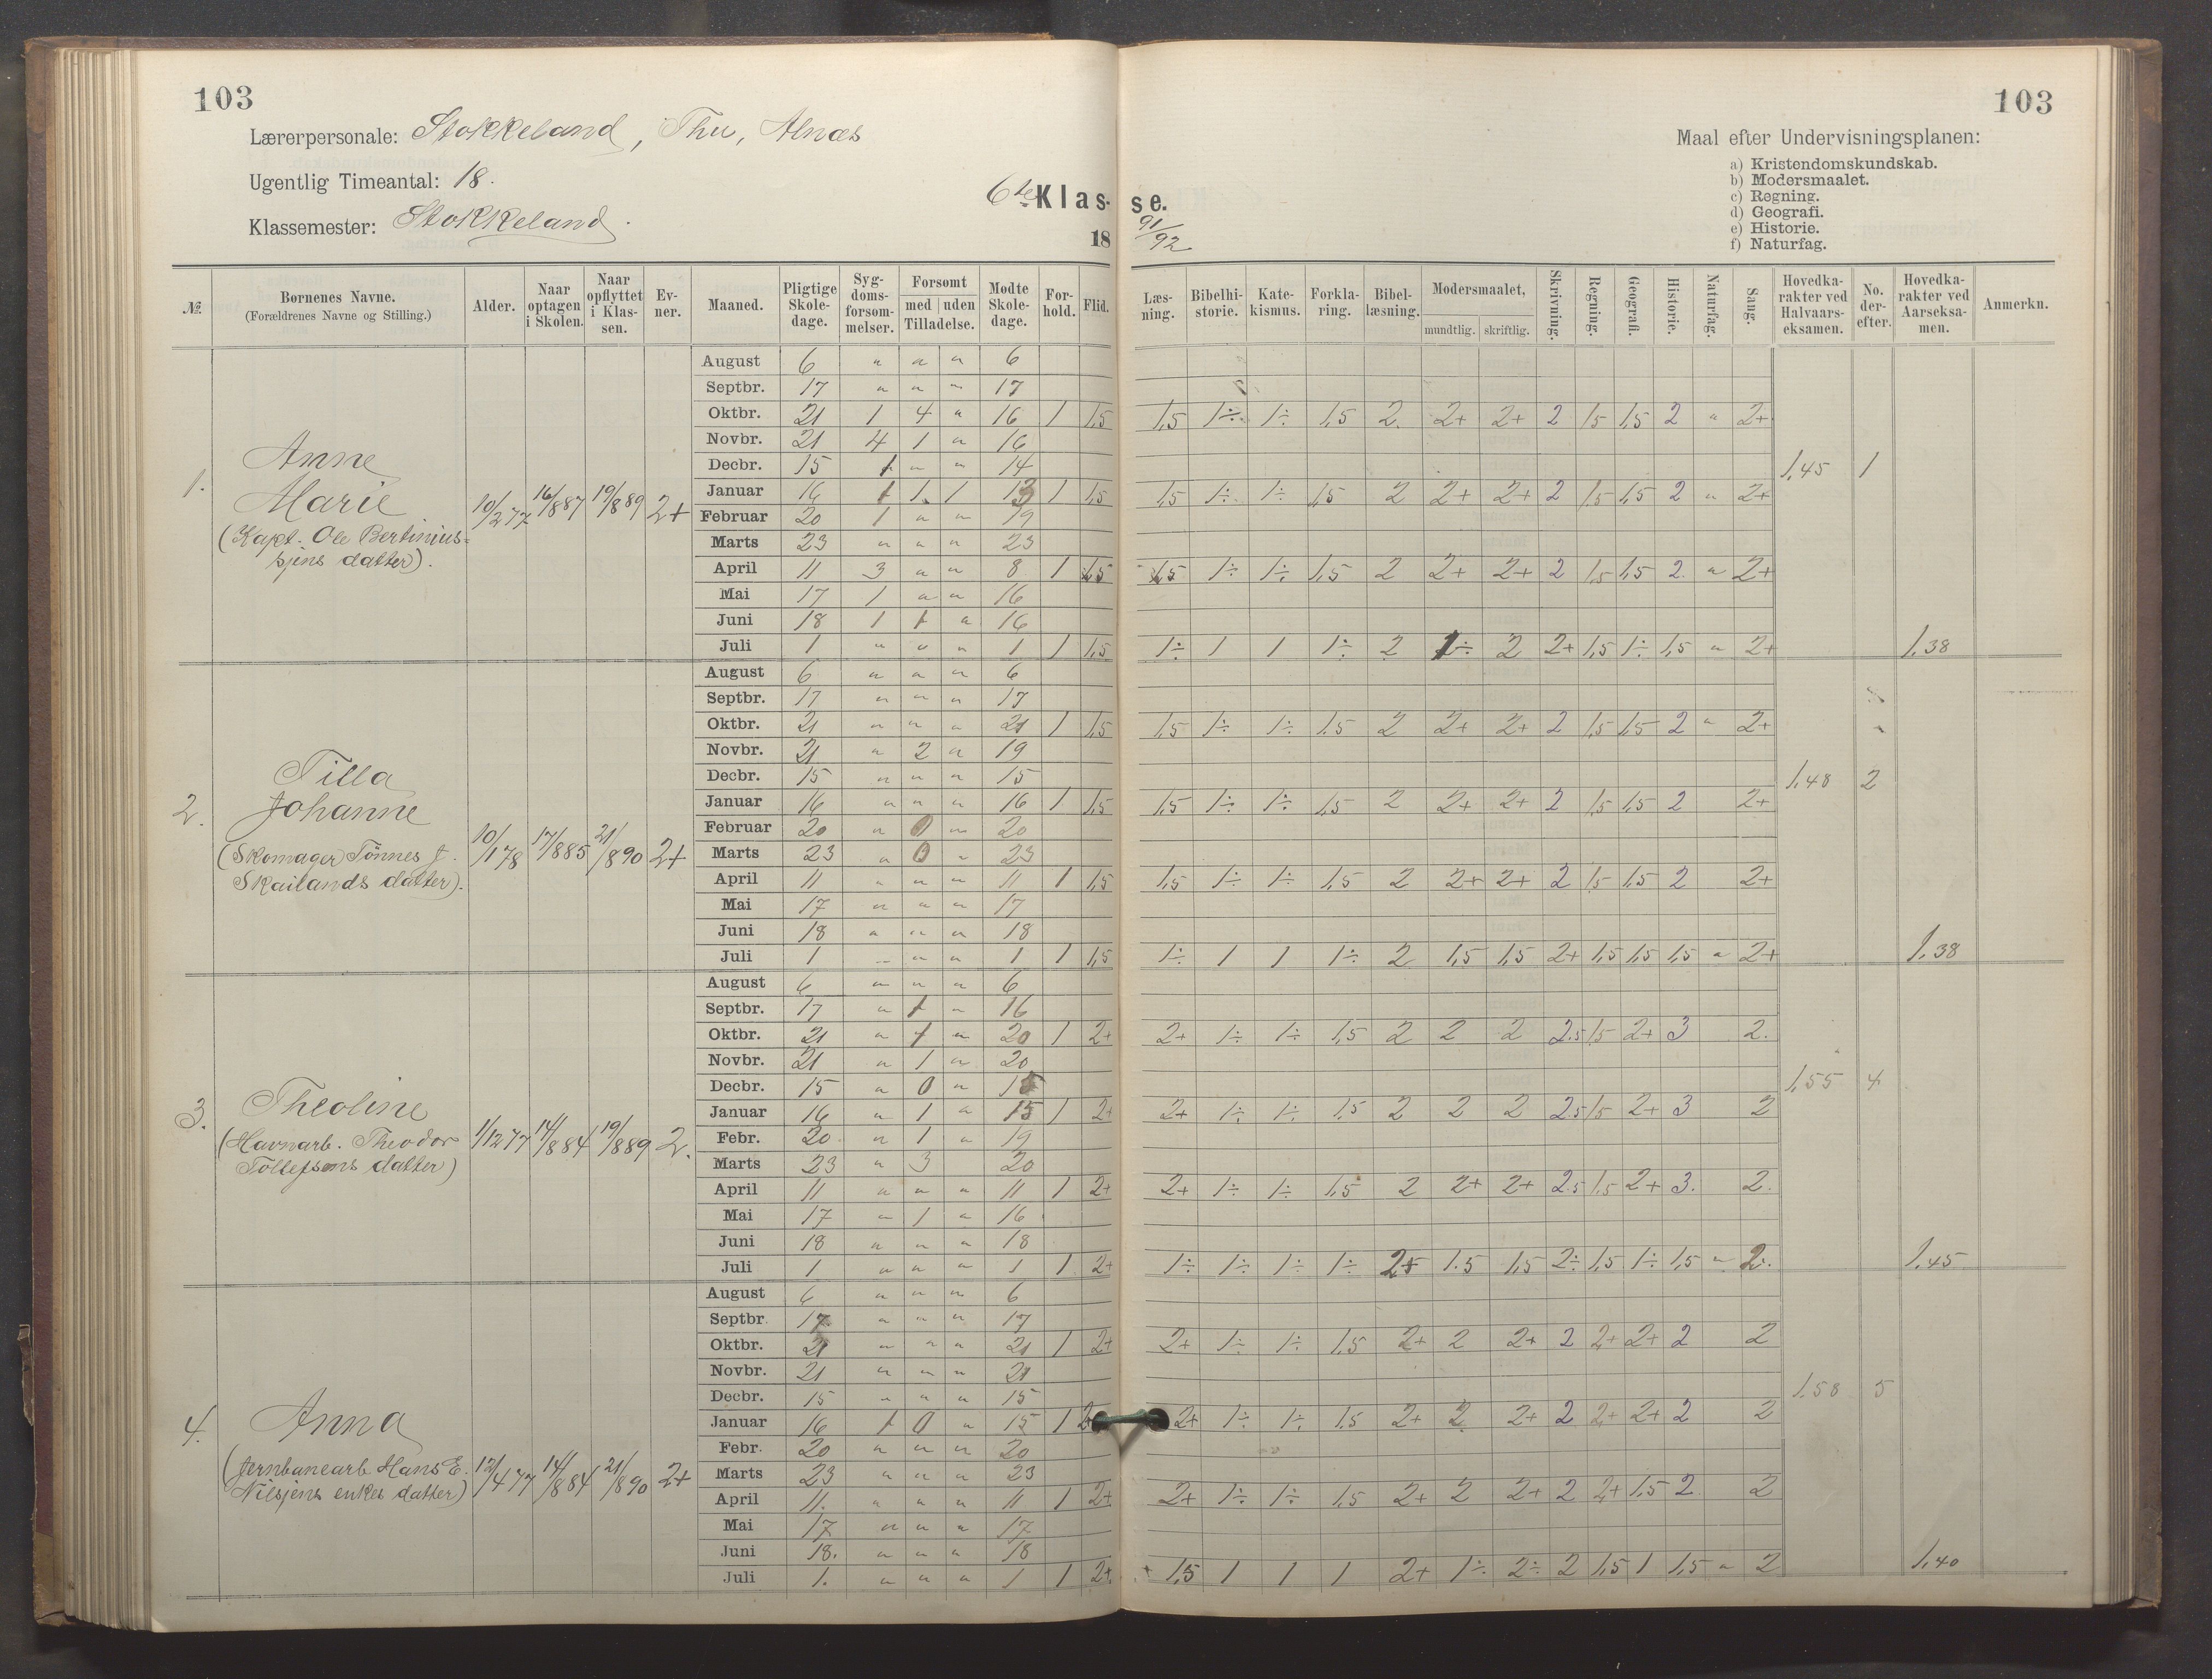 103
103
Lærerpersonale: Stokkeland, Thu, Alnæs
Ugentlig Timeantal: 18.
Klassemester: Stokkeland.
6te Klas- se.
18 91/92
Maal efter Undervisningsplanen:
a) Kristendomskundskab.
b) Modersmaalet.
c) Regning.
d) Geografi.
e) Historie.
f) Naturfag.
№ Børnenes Navne. (Forældrenes Navne og Stilling.) Alder. Naar optagen i Skolen. Naar opflyttet i Klassen. Evner. Maaned. Pligtige Skoledage. Sygdomsforsømmelser. Forsømt med uden Tilladelse. Mødte Skoledage. Forhold. Flid. Læsning. Bibelhistorie. Katekismus. Forklaring. Bibellæsning. Modersmaalet, mundtlig. skriftlig. Skrivning. Regning. Geografi. Historie. Naturfag. Sang. Hovedkarakter ved Halvaarseksamen. No. derefter. Hovedkarakter ved Aarseksamen. Anmerkn.
1. Anne
Marie
(Kapt. Ole Bertinius-
sens datter).
10/2 77 16/8 87 19/8 89 2+
August 6 " " " 6
Septbr. 17 " " " 17
Oktbr. 21 1 4 " 16 1 1,5 1,5 1÷ 1÷ 1,5 2 2+ 2+ 2 1,5 1,5 2 " 2+
Novbr. 21 4 1 " 16
Decbr. 15 1 " " 14 1,45 1
Januar 16 1 1 1 13 1 1,5 1,5 1÷ 1÷ 1,5 2 2+ 2+ 2 1,5 1,5 2 " 2+
Februar 20 1 " " 19
Marts 23 " " " 23
April 11 3 " " 8 1 1,5 1,5 1÷ 1÷ 1,5 2 2+ 2+ 2 1,5 1,5 2 " 2+
Mai 17 1 " " 16
Juni 18 1 1 " 16
Juli 1 " " " 1 1 1,5 1÷ 1 1 1÷ 2 1÷ 2 2+ 1,5 1÷ 1,5 " 2+ 1,38
2. Tilla
Johanne
(Skomager Tönnes J.
Skailands datter).
10/1 78 17/8 85 21/8 90 2+
August 6 " " " 6
Septbr. 17 " " " 17
Oktbr. 21 " " " 21 1 1,5 1,5 1÷ 1÷ 1,5 2 2+ 2+ 2 1,5 1,5 2 " 2+
Novbr. 21 " 2 " 19
Decbr. 15 " " " 15 1,48 2
Januar 16 " " " 16 1 1,5 1,5 1÷ 1÷ 1,5 2 2+ 2+ 2 1,5 1,5 2 2+
Februar 20 " 0 " 20
Marts 23 " 0 " 23
April 11 " " " 11 1 1,5 1,5 1÷ 1÷ 1,5 2 2+ 2+ 2 1,5 1,5 2 2+
Mai 17 " " " 17
Juni 18 " " " 18
Juli 1 " " " 1 1 1,5 1÷ 1 1 1÷ 2 1,5 1,5 2+ 1,5 1,5 1,5 " 2+ 1,38
3. Theoline
(Havnarb. Theodor
Tollefsens datter)
1/12 77 14/8 84 19/8 89 2.
August 6 " " " 6
Septbr. 17 " 1 " 16
Oktbr. 21 " 1 " 20 1 2+ 2+ 1÷ 1÷ 1,5 2 2 2 2.5 1,5 2+ 3 2.
Novbr. 21 " 1 " 20
Decbr. 15 " 0 " 15 1,55 4
Januar 16 " 1 " 15 1 2+ 2+ 1÷ 1÷ 1,5 2 2 2 2.5 1,5 2+ 3 2
Febr. 20 " 1 " 19
Marts 23 " 3 20
April 11 " " " 11 1 2+ 2+ 1÷ 1÷ 1,5 2 2+ 2+ 2.5 1,5 2+ 3. 2.
Mai 17 " 1 " 16
Juni 18 " " " 18
Juli 1 " " " 1 1 2+ 1÷ 1÷ 1÷ 1÷ 2+ 1.5 1,5 2÷ 1,5 1÷ 1,5 " 2. 1,45
4. Anna
(Jernbanearb Hans E.
Nilsens enkes datter)
12/4 77 14/8 84 21/8 90 2+
August 6 " " " 6
Septbr. 17. " " " 17
Oktbr. 21 " " " 21 1 2+ 2+ 1÷ 1÷ 1,5 2+ 2 2+ 2 2+ 2+ 2 2
Novbr. 21 " " " 21
Decbr. 15 " " " 15 1,58 5
Januar 16 1 0 " 15 1 2+ 2+ 1÷ 1÷ 1,5 2+ 2 2+ 2 2+ 2+ 2 2
Febr. 20 " " " 20
Marts 23 " " " 23
April 11. " " " 11 1 2+ 2+ 1÷ 1÷ 1,5 2+ 2 2+ 2 2+ 1,5 2 2
Mai 17 " " " 17
Juni 18. " " " 18
Juli 1. " " " 1 1 2+ 1,5 1 1 1 2+ 1÷ 2÷ 2 1,5 1 1,5 " 2 1,40